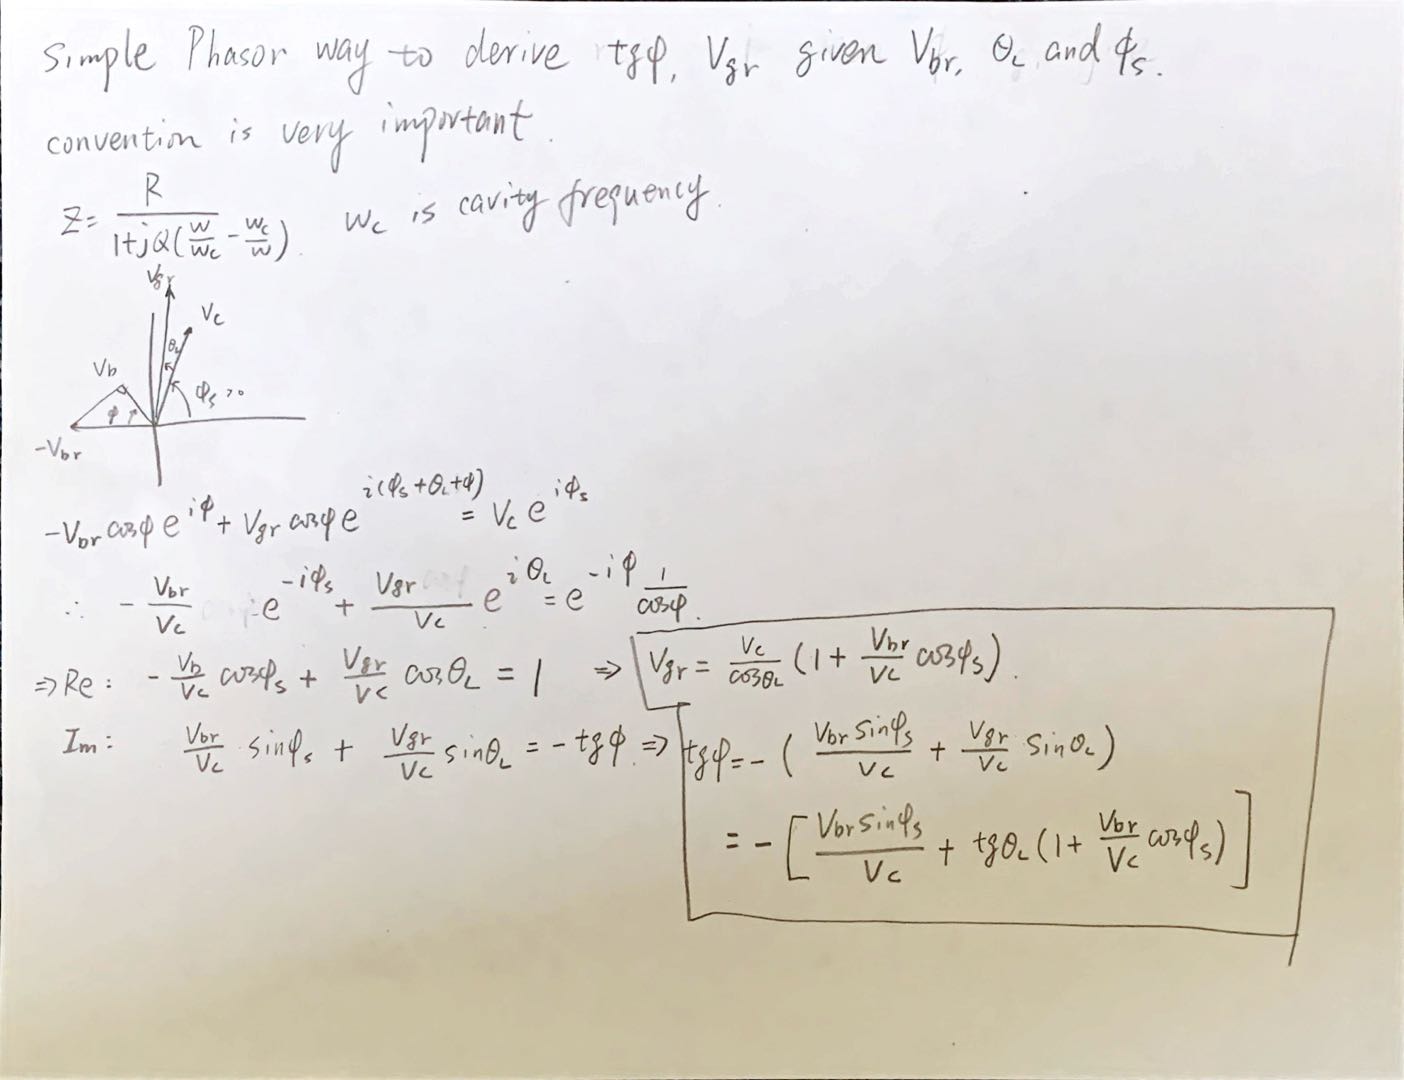 Simple Phasor way to derive tgφ, Vgr given Vbr, θL and ϕs.
convention is very important.
Z = R / (1+jQ(w/wc - wc/w)). wc is cavity frequency.
Vgr
Vc
θL
Vb
ϕs >0
φ
-Vbr
-Vbr cosφ e^{iφ} + Vgr cosφ e^{i(ϕs+θL+φ)} = Vc e^{iϕs}
∴ - Vbr/Vc e^{-iϕs} + Vgr/Vc e^{iθL} = e^{-iφ} 1/cosφ.
⇒ Re: - Vb/Vc cosφs + Vgr/Vc cosθL = 1 ⇒ Vgr = Vc/cosθL (1 + Vbr/Vc cosφs).
Im: Vbr/Vc sinφs + Vgr/Vc sinθL = - tgφ. ⇒ tgφ = - (Vbr sinφs/Vc + Vgr/Vc sinθL)
= - [Vbr sinφs/Vc + tgθL (1 + Vbr/Vc cosφs)]